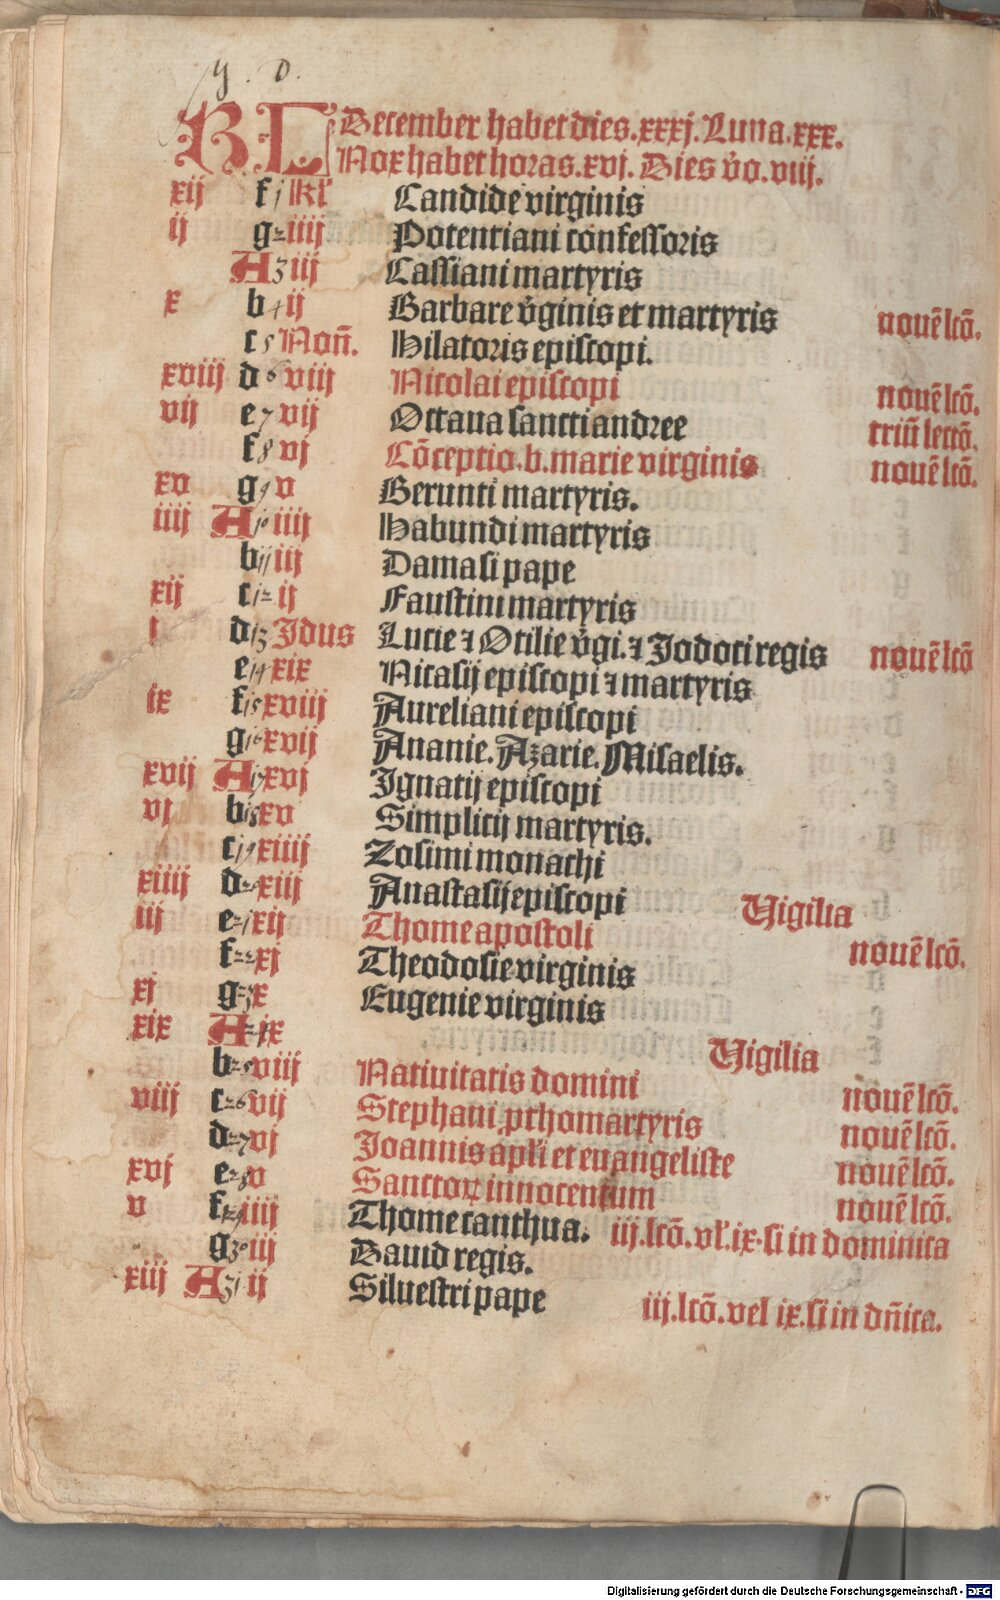 y . d.
KL December habet dies.xxxj.Luna.xxx.
Nox habet horas.xvj. Dies v̄o.viij.
xij f j kl' Candide virginis
ij g 2 iiij Potentiani confessoris
A 3 iij Cassiani martyris
x b 4 ij Barbare v̄ginis et martyris nouē lcō.
c 5 Non̄. Hilatoris episcopi.
xviij d 6 viij Nicolai episcopi nouē lcō.
vij e 7 vij Octaua sancti andree triū lectō.
f 8 vj Cōceptio.b.marie virginis nouē lcō.
xv g 9 v Gerunti martyris.
iiij A jo iiij Habundi martyris
b ij iij Damasi pape
xij c 12 ij Faustini martyris
j d 13 Idus Lucie ⁊ Otilie v̄gi.⁊ Jodoci regis nouē lcō
e 14 xix Nicasij episcopi ⁊ martyris
ix f 15 xviij Aureliani episcopi
g 16 xvij Ananie. Azarie. Misaelis.
xvij A 17 xvj Ignatij episcopi
vj b 18 xv Simplicij martyris.
c 19 xiiij Zosimi monachi
xiiij d 20 xiij Anastasij episcopi Vigilia
iij e 21 xij Thome apostoli nouē lcō.
f 22 xj Theodosie virginis
xj g 23 x Eugenie virginis
xix A 24 ix Vigilia
b 25 viij Natiuitatis domini nouē lcō.
viij c 26 vij Stephani ꝓthomartyris nouē lcō.
d 27 vj Joannis apl'i et euangeliste nouē lcō.
xvj e 28 v Sanctoꝝ innocentum nouē lcō.
v f 29 iiij Thome canthua. iij.lcō.vl'.ix.si in dominica
g 30 iij Dauid regis.
xiij A 31 ij Siluestri pape iij.lcō.vel ix.si in dn̄ica.
Digitalisierung gefördert durch die Deutsche Forschungsgemeinschaft - DFG